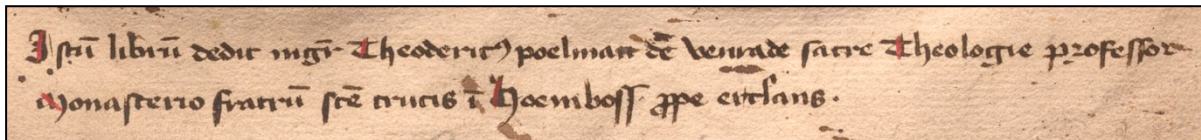 Istū librū dedit mgr̄ Theoderic⁹ poelman de venrade sacre Theologie professor
Monasterio fratrū scē crucis ī Hoemboss ꝓpe